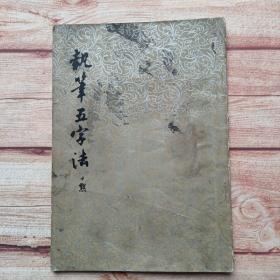 執筆五字法